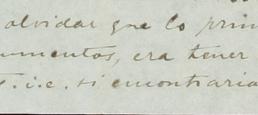 olvidar que lo prim
umentos, era tener
T.i.c. si encontraria